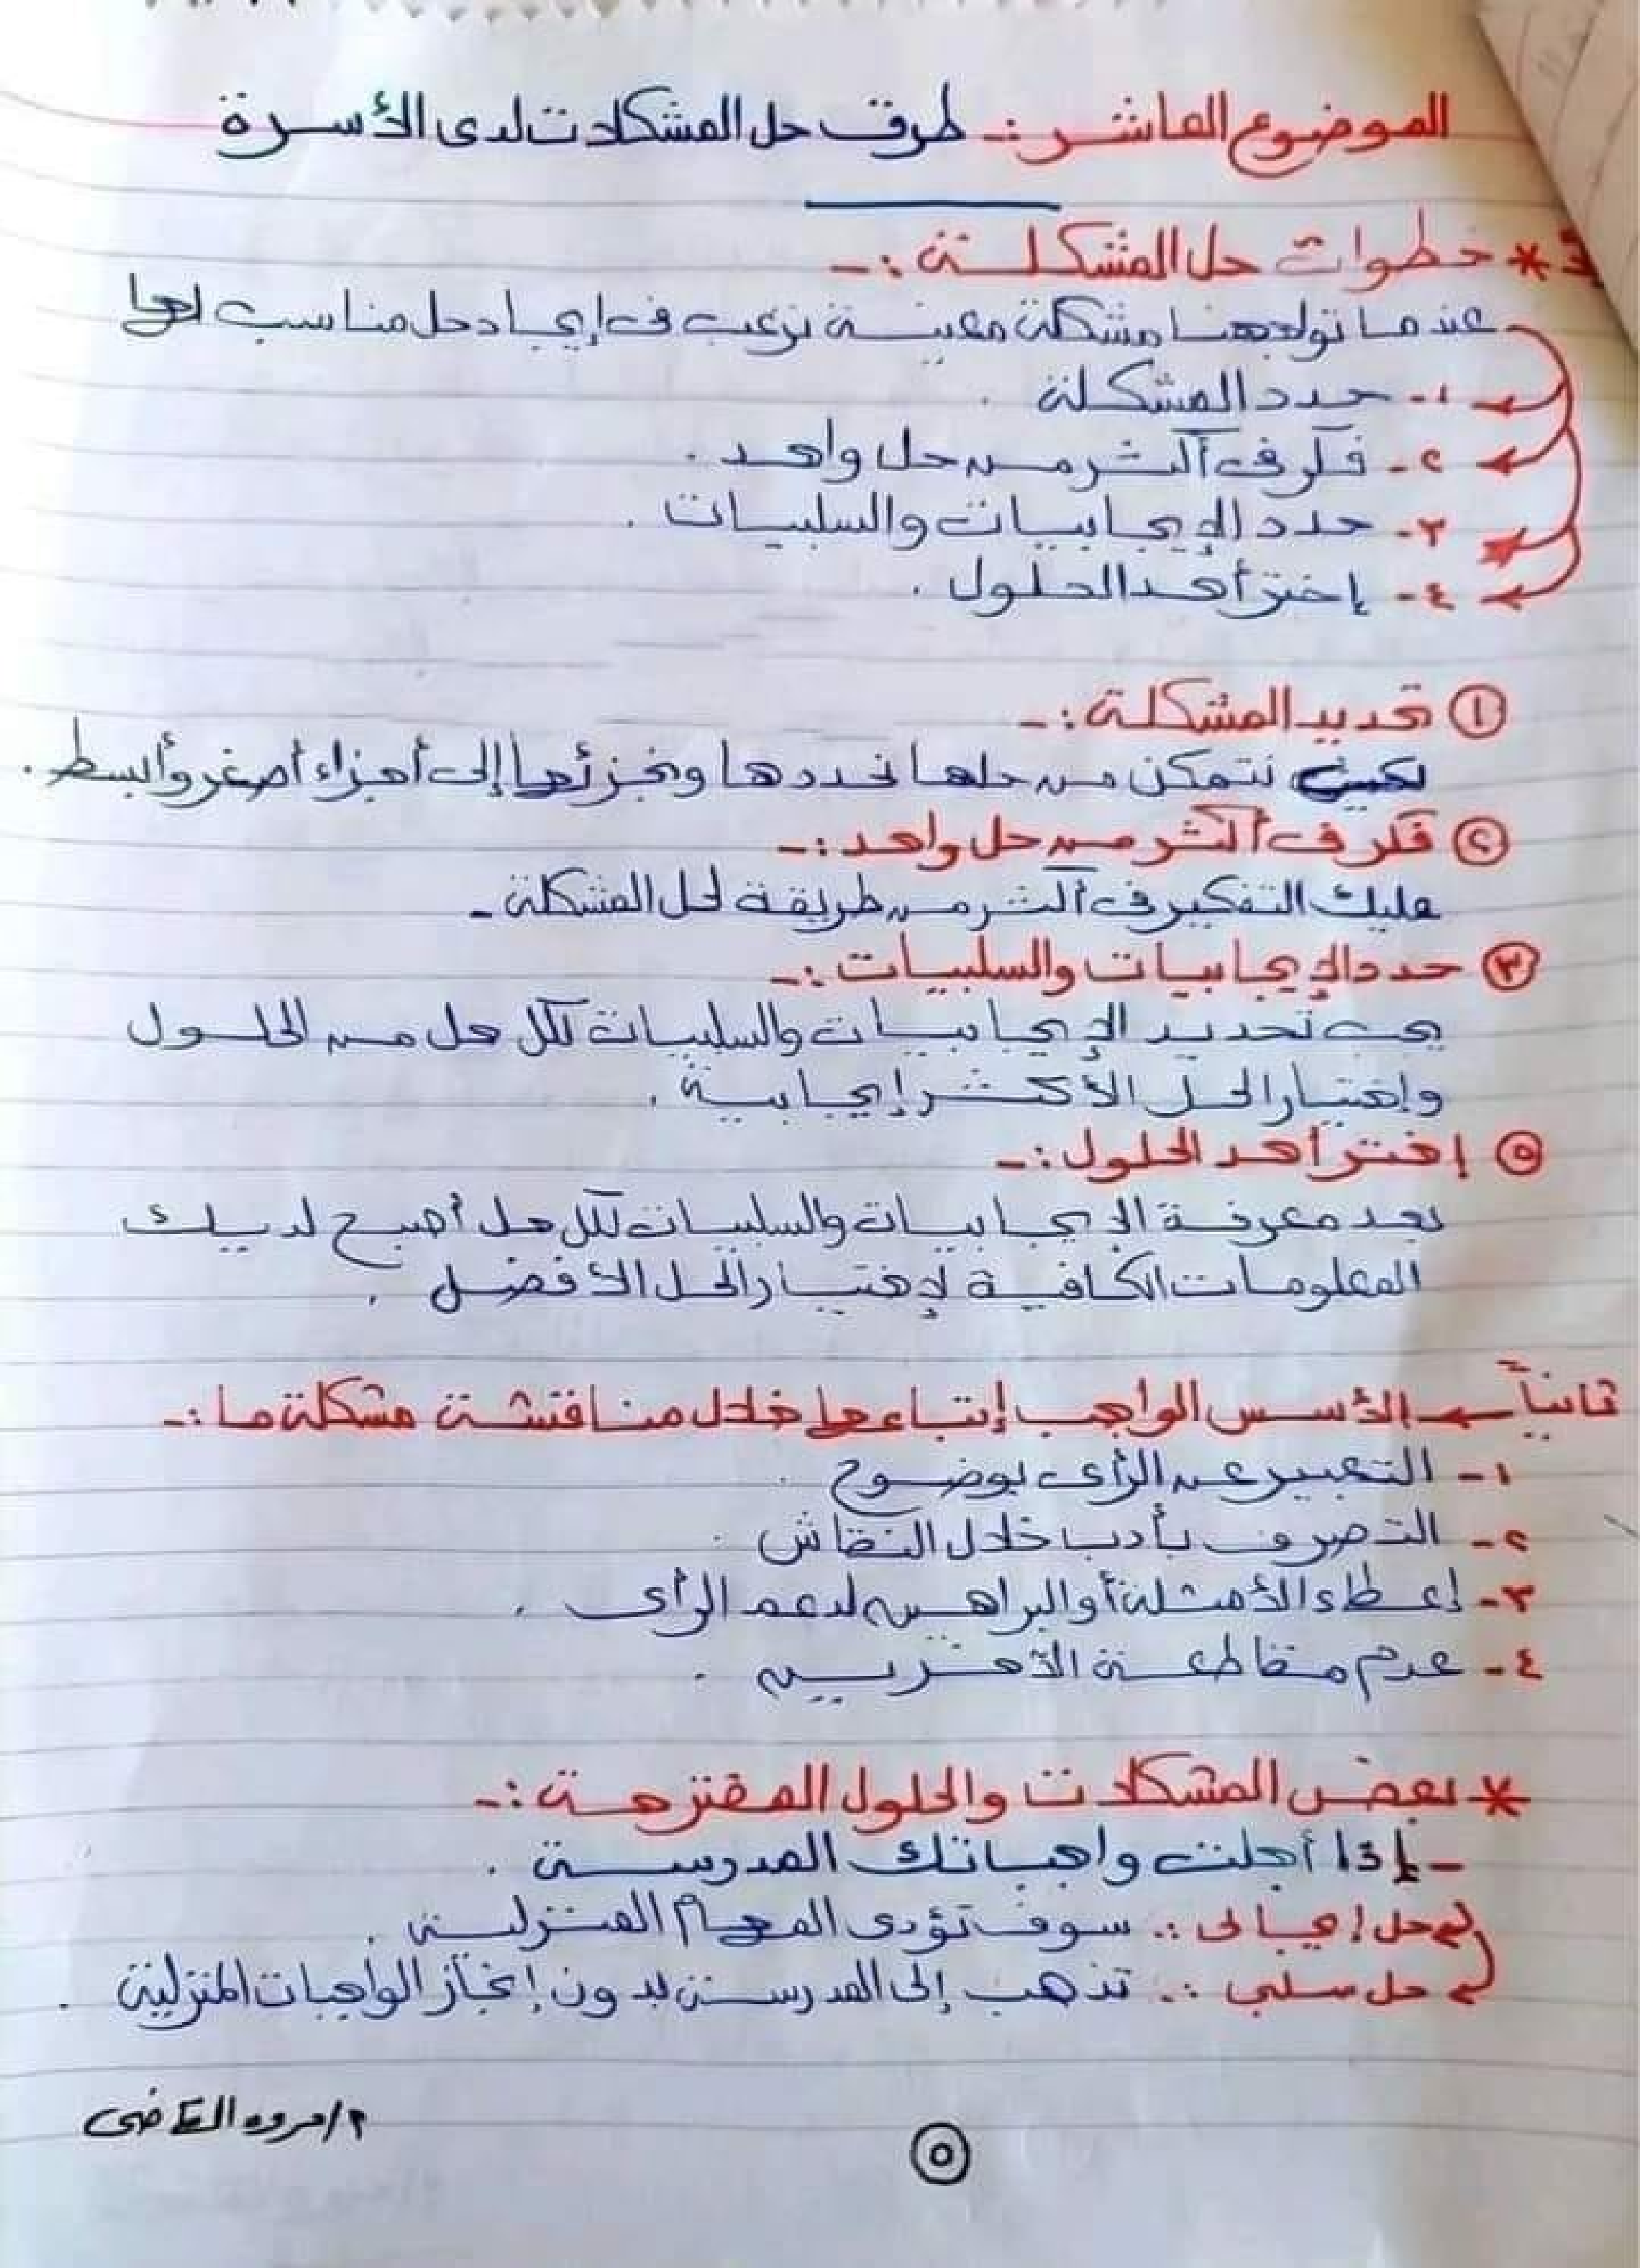 الموضوع العاشر :- طرق حل المشكلات لدى الأسرة
* خطوات حل المشكلة :-
عندما تواجهنا مشكلة معينة نرغب فى إيجاد حل مناسب لها
١- حدد المشكلة .
٢- فكر فى أكثر من حل واحد .
٣- حدد الإيجابيات والسلبيات .
٤- إختر أحد الحلول .
① تحديد المشكلة :-
لكى نتمكن من حلها نحددها ونجزئها إلى أجزاء أصغر وأبسط .
② فكر فى أكثر من حل واحد :-
عليك التفكير فى أكثر من طريقة لحل المشكلة -
③ حدد الإيجابيات والسلبيات :-
يجب تحديد الإيجابيات والسلبيات لكل حل من الحلول
وإختيار الحل الأكثر إيجابية .
⑤ إختر أحد الحلول :-
بعد معرفة الإيجابيات والسلبيات لكل حل أصبح لديك
المعلومات الكافية لإختيار الحل الأفضل .
ثانياً ← الأسس الواجب إتباعها خلال مناقشة مشكلة ما :-
١- التعبير عن الرأى بوضوح .
٢- التصرف بأدب خلال النقاش .
٣- إعطاء الأمثلة أو البراهين لدعم الرأى .
٤- عدم مقاطعة الآخريين .
* بعض المشكلات والحلول المقترحة :-
- إذا أجلت واجباتك المدرسية .
حل إيجابى :. سوف تؤدى المهام المنزلية .
حل سلبي :. تذهب إلى المدرسة بدون إنجاز الواجبات المنزلية .
م/مروه القاضى
٥